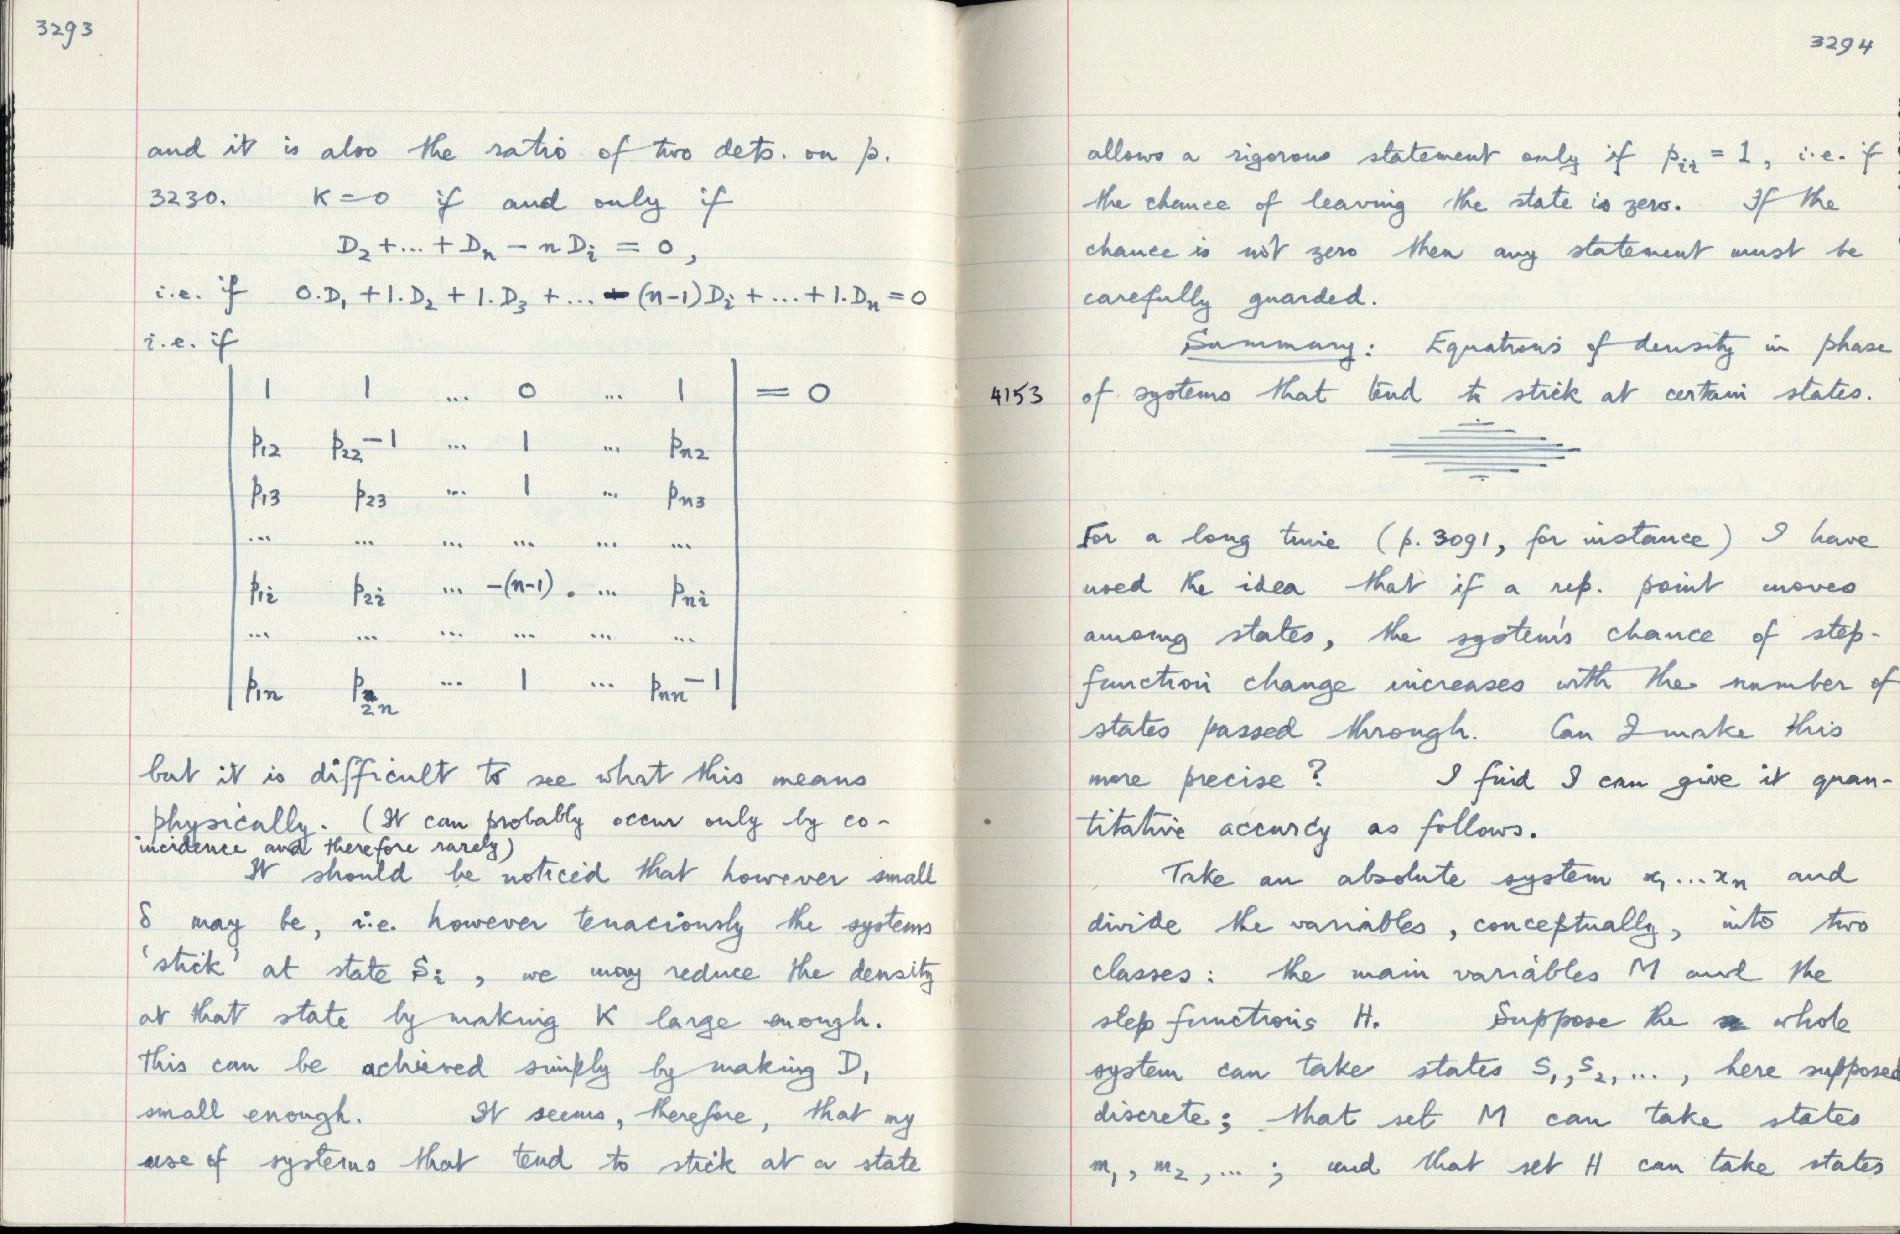 3293
and it is also the ratio of two dets. on p.
3230. K = 0 if and only if
D₂ + ... + Dₙ − n Dᵢ = 0 ,
i.e. if 0.D₁ + 1.D₂ + 1.D₃ + ... − (n−1)Dᵢ + ... + 1.Dₙ = 0
i.e. if
| 1 1 ... 0 ... 1 | = 0
p₁₂ p₂₂−1 ... 1 ... pₙ₂
p₁₃ p₂₃ ... 1 ... pₙ₃
... ... ... ... ... ...
p₁ᵢ p₂ᵢ ... −(n−1) . ... pₙᵢ
... ... ... ... ... ...
p₁ₙ p₂ₙ ... 1 ... pₙₙ−1
but it is difficult to see what this means
physically. (It can probably occur only by co-
incidence and therefore rarely)
It should be noticed that however small
δ may be, i.e. however tenaciously the systems
'stick' at state Sᵢ , we may reduce the density
at that state by making K large enough.
This can be achieved simply by making D₁
small enough. It seems, therefore, that my
use of systems that tend to stick at a state
3294
allows a rigorous statement only if pᵢᵢ = 1, i.e. if
the chance of leaving the state is zero. If the
chance is not zero then any statement must be
carefully guarded.
Summary: Equations of density in phase
4153 of systems that tend to stick at certain states.
For a long time (p. 3091, for instance) I have
used the idea that if a rep. point moves
among states, the system's chance of step-
function change increases with the number of
states passed through. Can I make this
more precise? I find I can give it quan-
titative accurcy as follows.
Take an absolute system x₁ ... xₙ and
divide the variables, conceptually, into two
classes: the main variables M and the
step functions H. Suppose the whole
system can take states S₁, S₂, ... , here supposed
discrete; that set M can take states
m₁, m₂, ... ; and that set H can take states